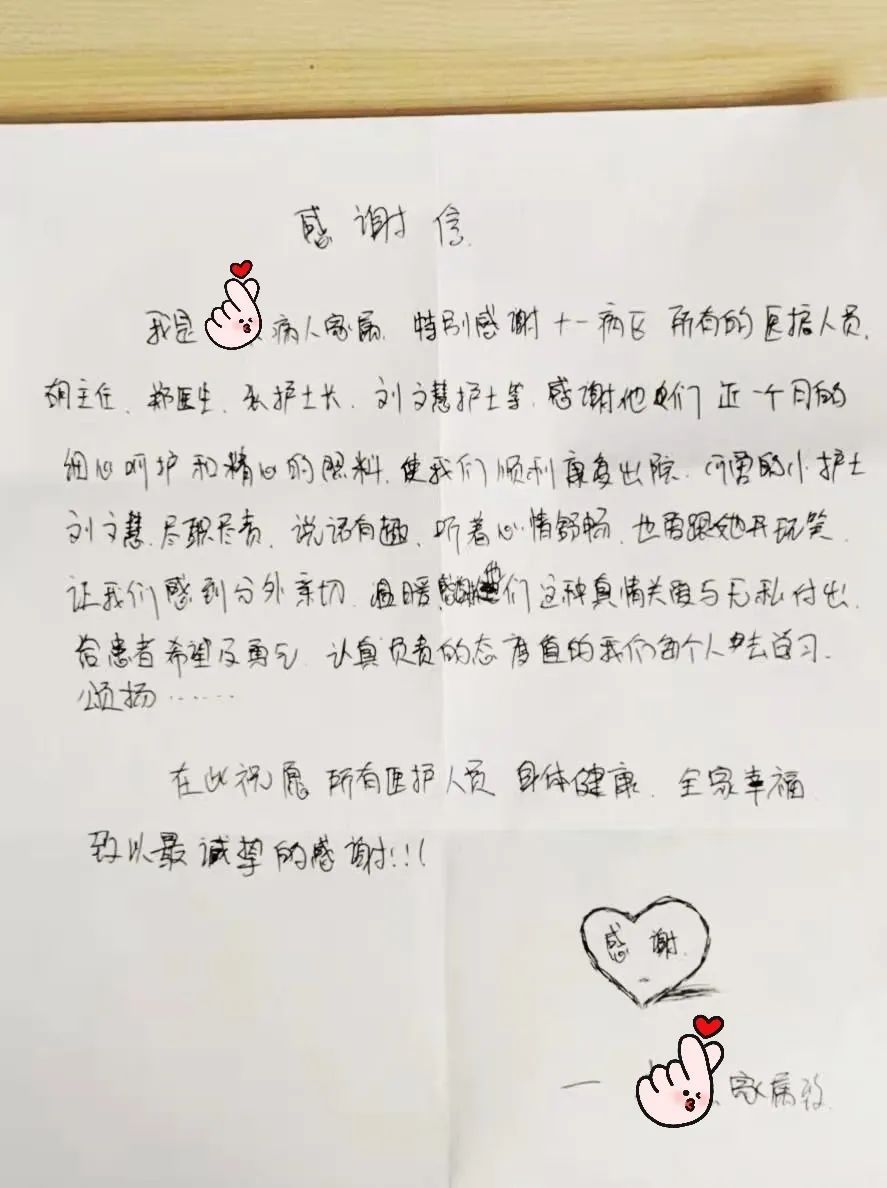 感谢信
我是 病人家属 特别感谢十一病区所有的医护人员,
胡主任、郑医生、 护士长、刘文慧护士等,感谢他她们近一个月的
细心呵护和精心的照料,使我们顺利康复出院. 可爱的小护士
刘文慧,尽职尽责,说话有趣,听着心情舒畅,也爱跟她开玩笑,
让我们感到分外亲切,温暖, 他们这种真情关爱与无私付出,
给患者希望及勇气,认真负责的态度值的我们每个人 去学习.
颂扬……
在此祝愿 所有医护人员 身体健康、全家幸福
致以最诚挚的感谢!!!
感谢.
一 家属致.